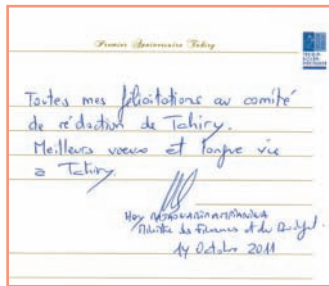 Premier Anniversaire Tahiry
Toutes mes félicitations au comité
de rédaction de Tahiry.
Meilleurs voeux et longue vie
a Tahiry.
Hery RAJAONARIMAMPIANINA
Ministre des Finances et du Budget.
14 Octobre 2011